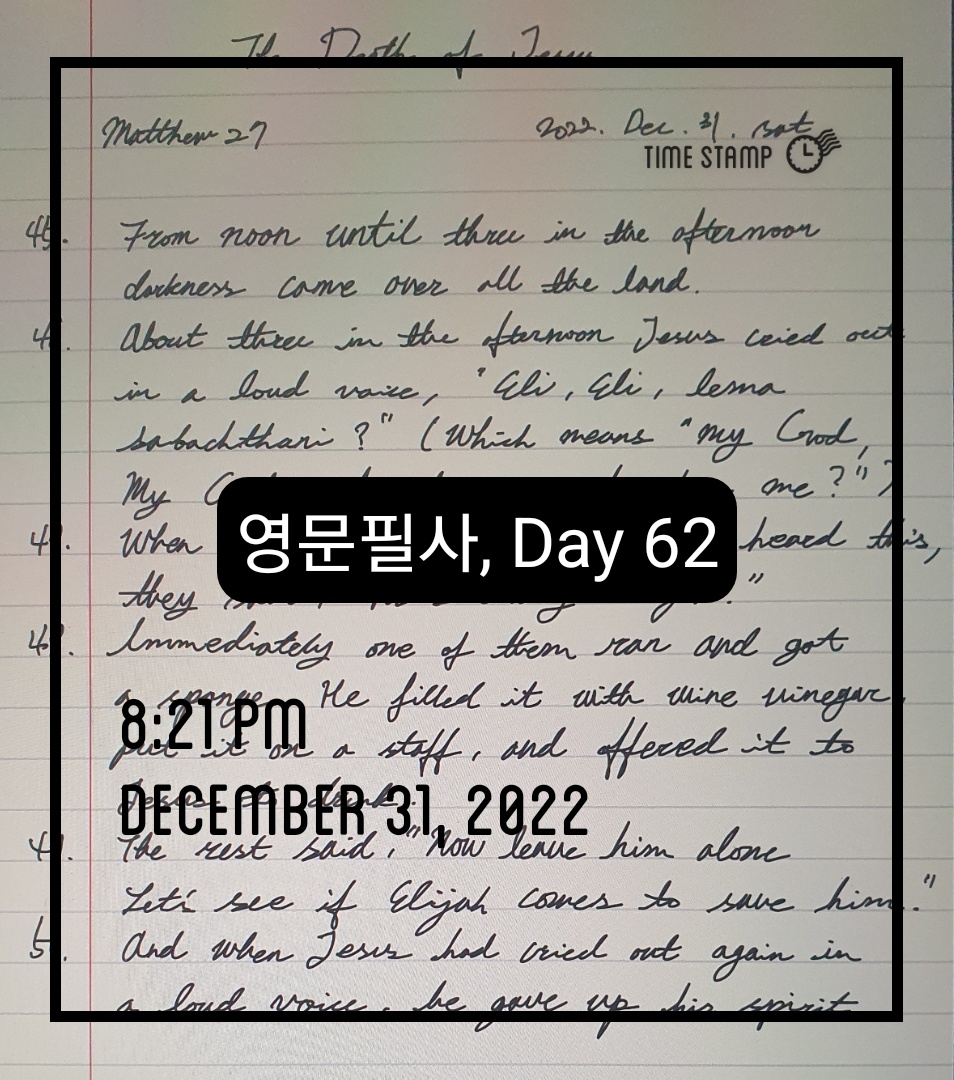 The Death of Jesus
Matthew 27
2022. Dec. 31. sat
TIME STAMP
45. From noon until three in the afternoon
darkness came over all the land.
4 . About three in the afternoon Jesus cried out
in a loud voice, "Eli, Eli, lema
sabachthani?" (Which means "my God,
My me?")
영문필사, Day 62
4 . When heard this,
they "
4 . Immediately one of them ran and got
a sponge. He filled it with wine vinegar,
8:21 PM
put it on a staff, and offered it to
Jesus to drink.
DECEMBER 31, 2022
4 . The rest said, "Now leave him alone
Let's see if Elijah comes to save him."
5 . And when Jesus had cried out again in
a loud voice, he gave up his spirit